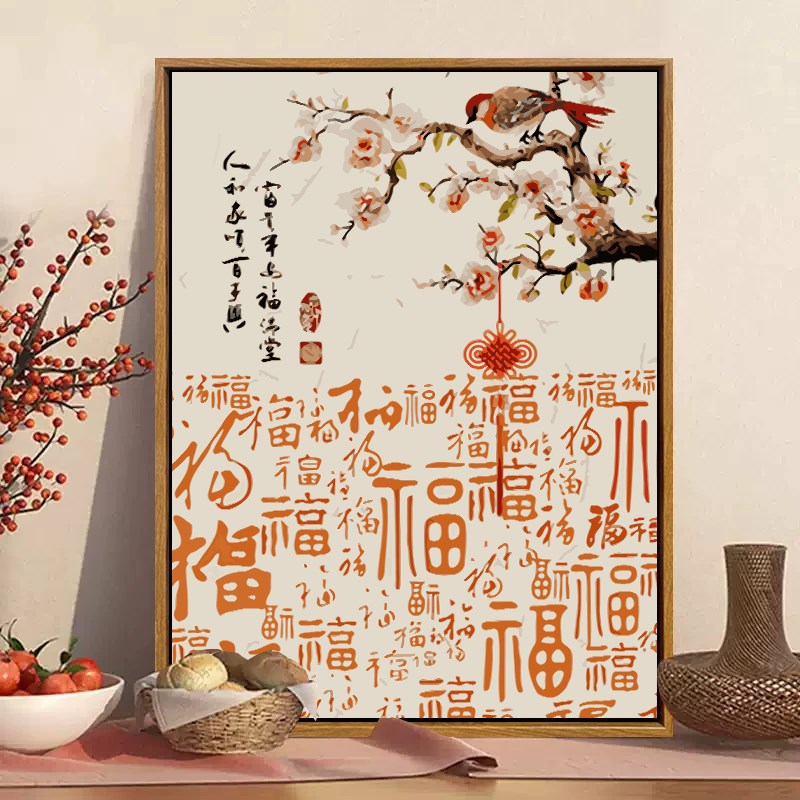 富貴平安福滿堂
人和家順百事興
福 福 福 福 福 福 福 福
福 福 福 福 福 福 福
福 福 福 福 福 福
福 福 福 福 福 福
福 福 福 福 福 福
福 福 福 福 福